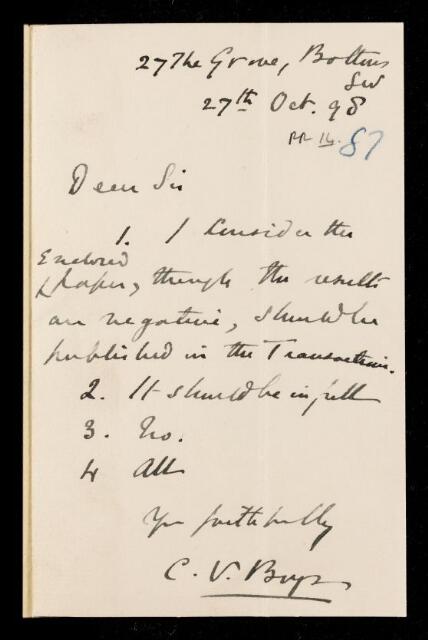 27 The Grove, Boltons
SW
27th Oct. 98
RR 14. 87
Dear Sir
1. I consider the
Enclosed
paper, though the results
are negative, should be
published in the Transactions.
2. It should be in full
3. No.
4 All
Yrs faithfully
C. V. Boys